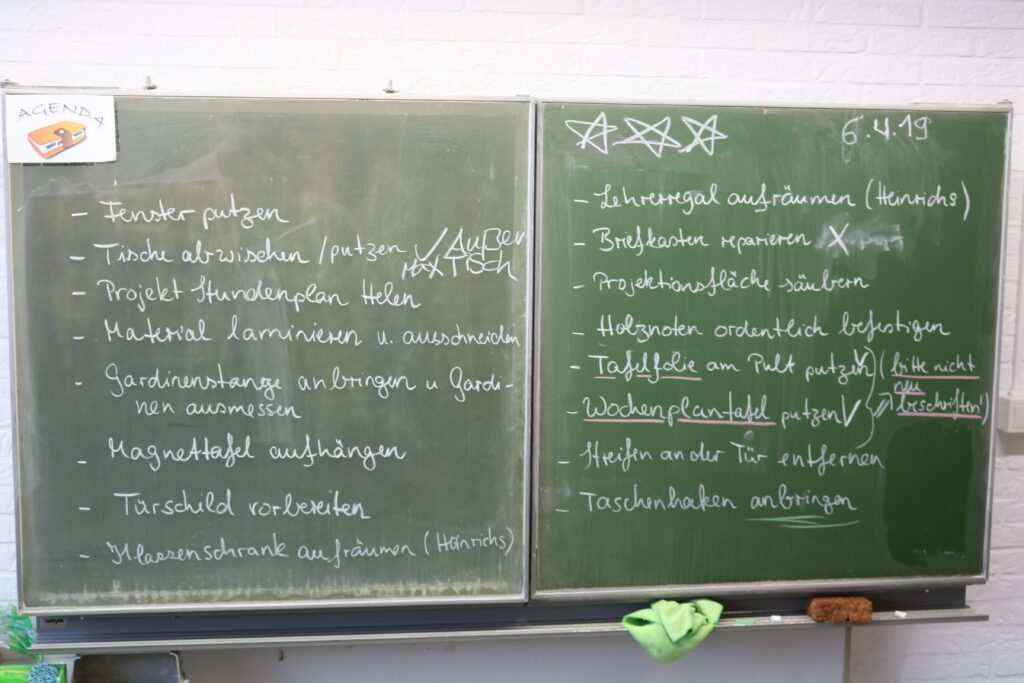 AGENDA
- Fenster putzen
- Tische abwischen / putzen ✓ Außer
Tisch
- Projekt Stundenplan Helen
- Material laminieren u. ausschneiden
- Gardinenstange anbringen u Gardi-
nen ausmessen
- Magnettafel aufhängen
- Türschild vorbereiten
- Klassenschrank aufräumen (Heinrichs)
6.4.19
- Lehrerregal aufräumen (Heinrichs)
- Briefkasten reparieren X
- Projektionsfläche säubern
- Holznoten ordentlich befestigen
- Tafelfolie am Pult putzen ✓ (bitte nicht
neu
- Wochenplantafel putzen ✓ beschriften!)
- Streifen an der Tür entfernen
- Taschenhaken anbringen